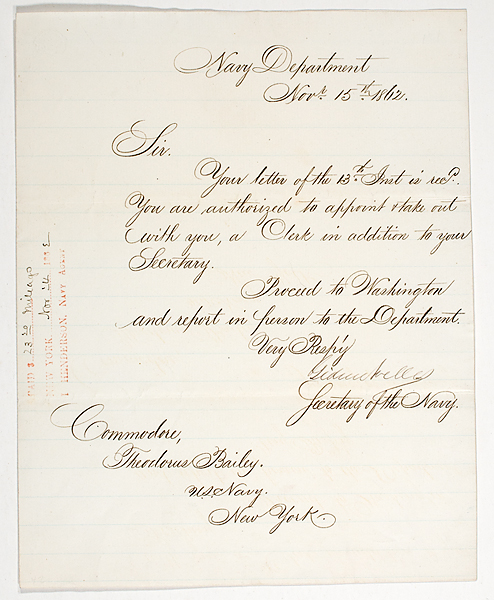 Navy Department
Novr. 15th 1862.
Sir.
Your letter of the 13th Inst is recd.
You are authorized to appoint & take out
with you, a Clerk in addition to your
Secretary.
Proceed to Washington
and report in person to the Department.
Very Respy
Gideon Welles
Secretary of the Navy.
Commodore,
Theodorus Bailey.
U.S. Navy.
New York.
PAID $ 23 20 Mileage
NEW YORK Nov
HENDERSON, NAVY AGENT